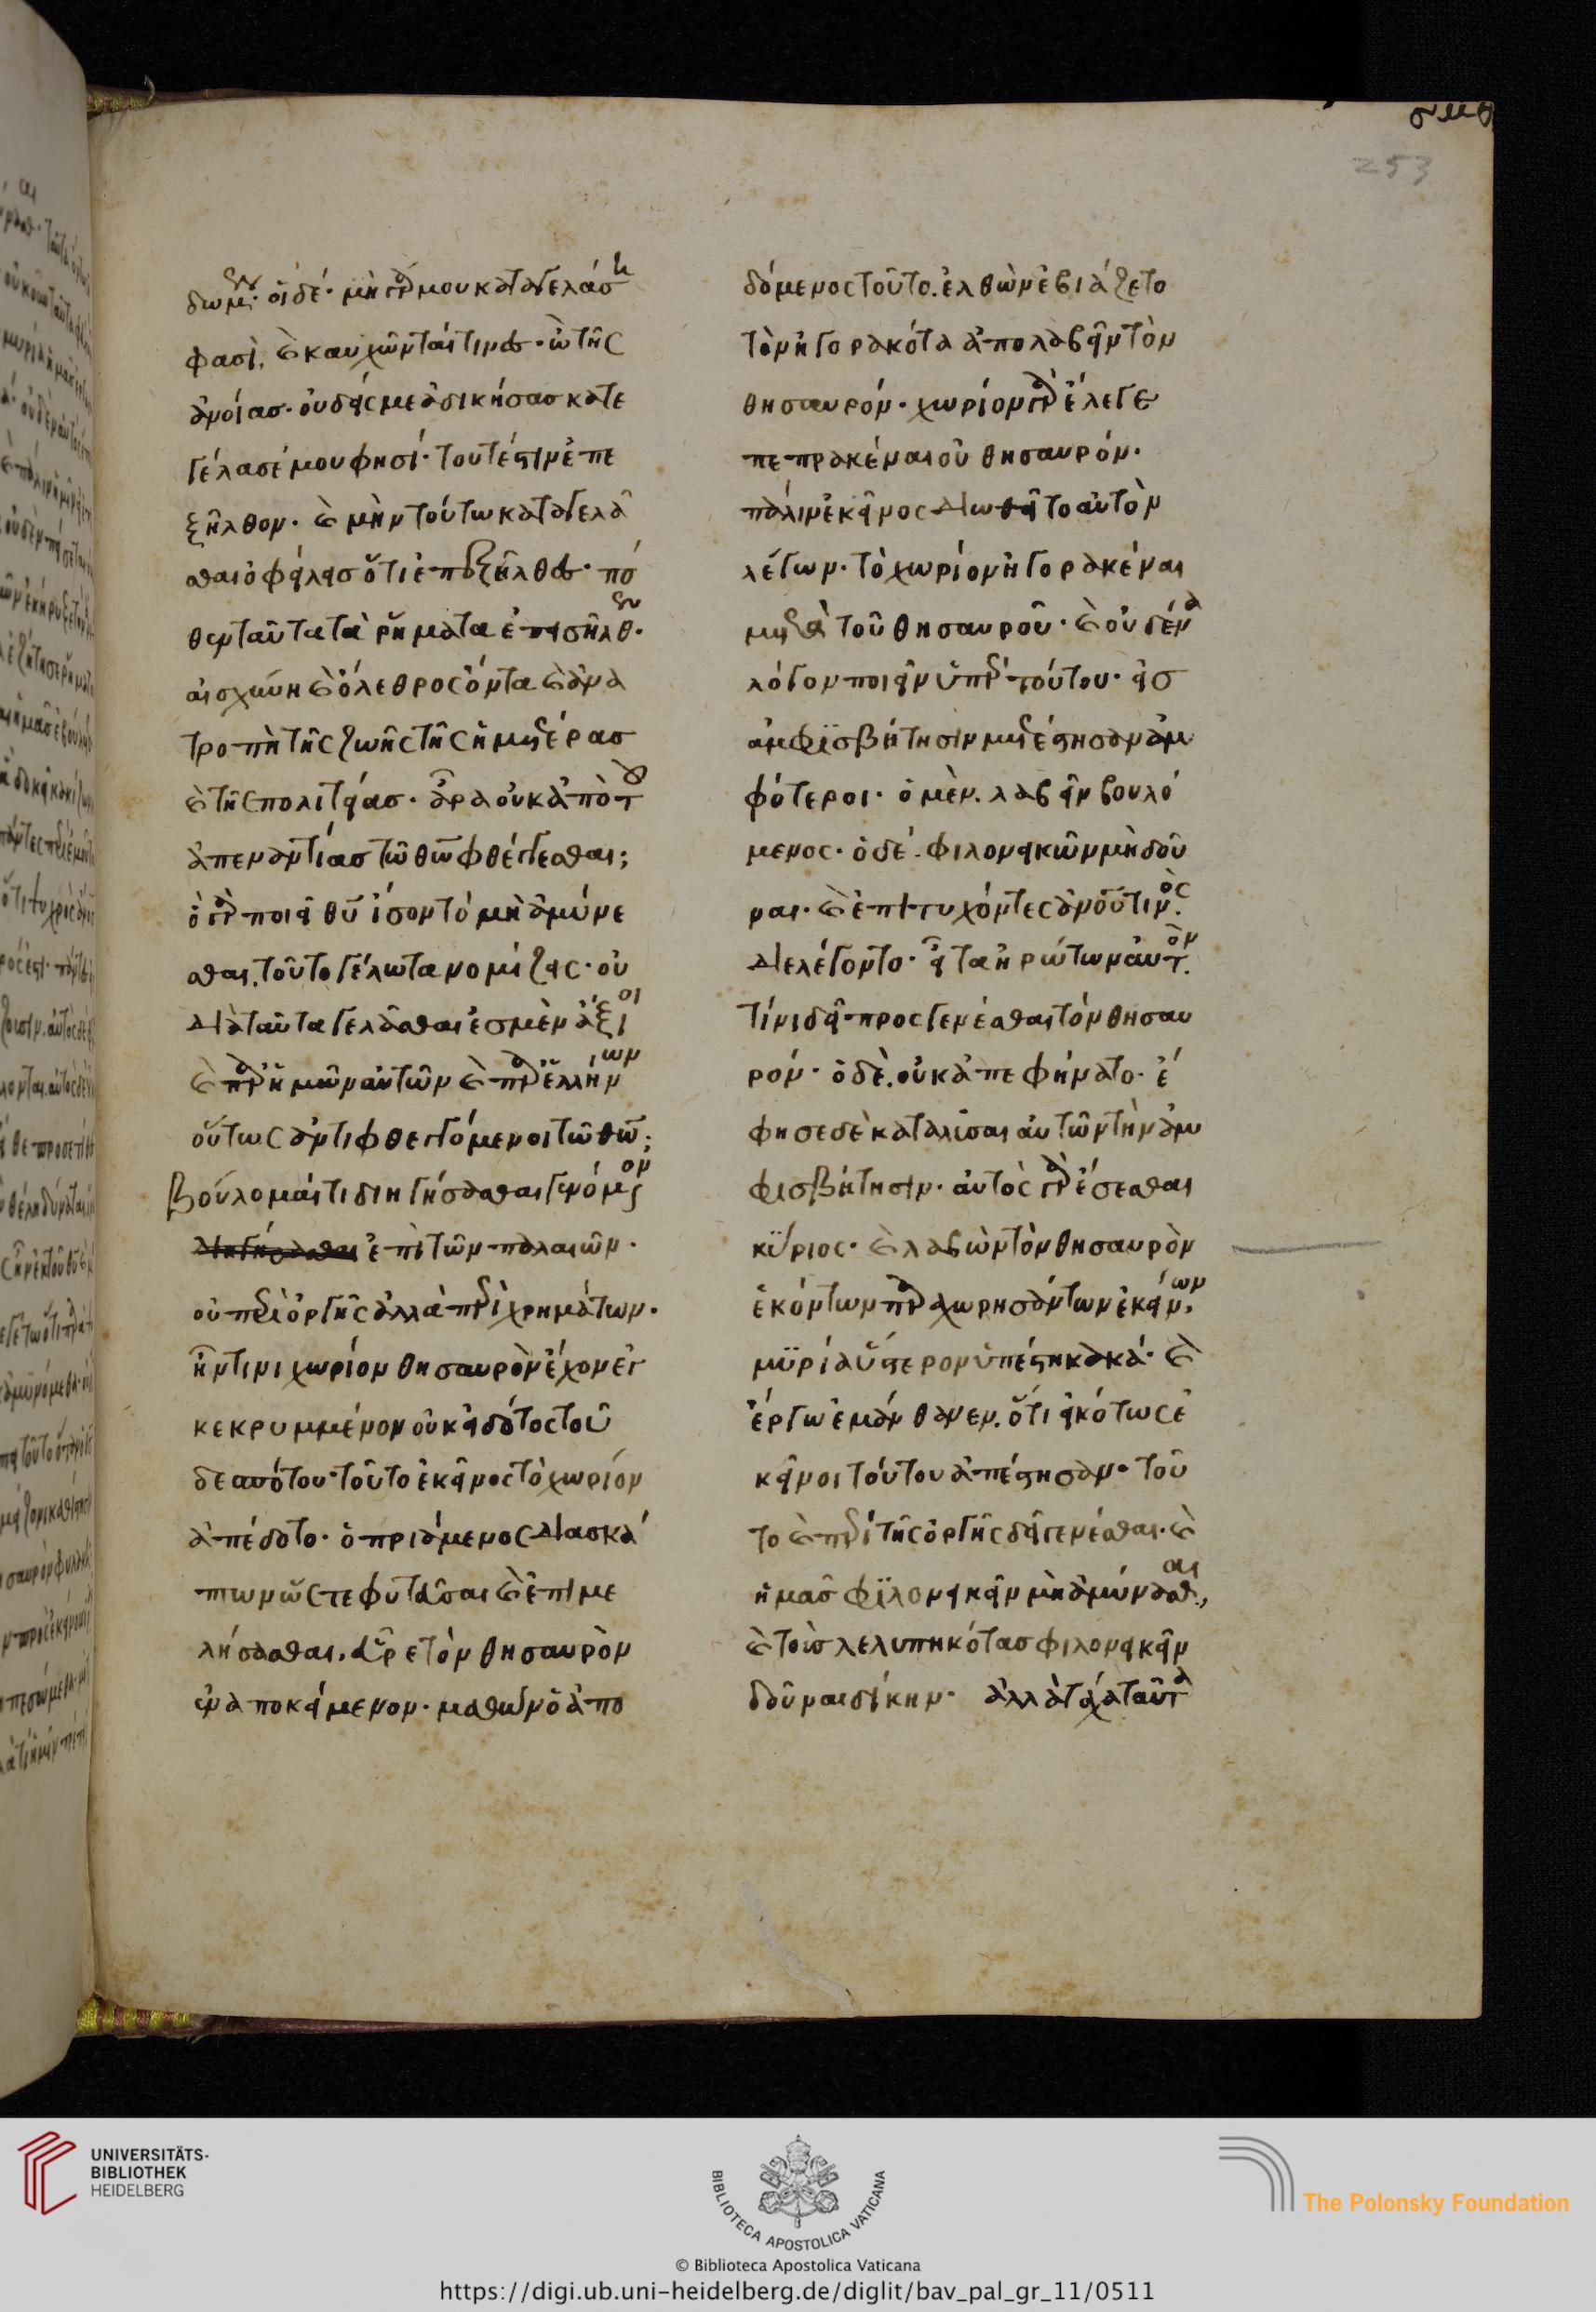 δωμεν· οἱ δέ· μὴ γάρ μου καταγελάση
φασὶ, καὶ καυχῶνταί τινες· ὢ τῆς
ἀνοίας· οὐδείς με ἀδικήσας κατε
γέλασέ μου φησί· τουτέστιν ἐπε
ξῆλθον· καὶ μὴν τούτω καταγελᾶ
σθαι ὀφείλεις ὅτι ἐπεξῆλθες· πό
θεν ταῦτα τὰ ῥήματα ἐπεισῆλθεν·
αἰσχύνη καὶ ὄλεθρος ὄντα καὶ ἀνα
τροπὴ τῆς ζωῆς τῆς ἡμετέρας
καὶ τῆς πολιτείας· ἆρα οὐκ ἀπὸ τοῦ
ἀπεναντίας τῶ θῶ φθέγγεσθαι;
ὃ γὰρ ποιεῖ θῦ ἴσον τὸ μὴ ἀμύνε
σθαι, τοῦτο γέλωτα νομίζεις· οὐ
διὰ ταῦτα γελᾶσθαι ἐσμὲν ἄξιοι
καὶ παρ ἡμῶν αὐτῶν καὶ παρ ἑλλήνων
οὕτως ἀντιφθεγγόμενοι τῶ θῶ;
Βούλομαί τι διηγήσασθαι γενόμενον
διηγήσασθαι ἐπὶ τῶν παλαιῶν·
οὐ περὶ ὀργῆς ἀλλὰ περὶ χρημάτων·
ἦν τινι χωρίον θησαυρὸν ἔχον ἐγ
κεκρυμμένον οὐκ εἰδότος τοῦ
δεσπότου· τοῦτο ἐκεῖνος τὸ χωρίον
ἀπέδοτο· ὁ πριάμενος διασκά
πτων ὥστε φυτεῦσαι καὶ ἐπιμε
λήσασθαι, εὗρε τὸν θησαυρὸν
ἐναποκείμενον· μαθὼν ὁ ἀπο
σμθ
253
δόμενος τοῦτο. ἐλθὼν ἐβιάζετο
τὸν ἠγορακότα ἀπολαβεῖν τὸν
θησαυρόν· χωρίον γὰρ ἔλεγε
πεπρακέναι οὐ θησαυρόν·
πάλιν ἐκεῖνος διωθεῖτο αὐτὸν
λέγων· τὸ χωρίον ἠγορακέναι
μετὰ τοῦ θησαυροῦ· καὶ οὐδένα
λόγον ποιεῖν ὑπὲρ τούτου· εἰς
ἀμφϊσβήτησιν μετέστησαν ἀμ
φότεροι· ὁ μὲν. λαβεῖν βουλό
μενος· ὁ δέ. φιλονεικῶν μὴ δοῦ
ναι· καὶ ἐπιτυχόντες ἀνοῦ τινὸς.
διελέγοντο· εἶτα ἠρώτων αὐτόν.
τίνι δεῖ προσγενέσθαι τὸν θησαυ
ρόν· ὁ δὲ. οὐκ ἀπεφήνατο· ἔ
φησε δὲ καταλῦσαι αὐτῶν τὴν ἀμ
φισβήτησιν· αὐτὸς γὰρ ἔσεσθαι
κΰριος· καὶ λαβὼν τὸν θησαυρὸν
ἑκόντων παραχωρησάντων ἐκείνων,
μϋρία ὕστερον ὑπέστη κακά· καὶ
ἔργω ἐμάνθανεν. ὅτι εἰκότως ἐ
κεῖνοι τούτου ἀπέστησαν· τοῦ
το καὶ περὶ τῆς ὀργῆς δεῖ γενέσθαι· καὶ
ἡμᾶς φϊλονεικεῖν μὴ ἀμύνασθαι,
καὶ τοὺς λελυπηκότας φιλονεικεῖν
δοῦναι δίκην· ἀλλὰ τάχα ταῦτα
UNIVERSITÄTS-
BIBLIOTHEK
HEIDELBERG
BIBLIOTECA APOSTOLICA VATICANA
© Biblioteca Apostolica Vaticana
The Polonsky Foundation
https://digi.ub.uni-heidelberg.de/diglit/bav_pal_gr_11/0511